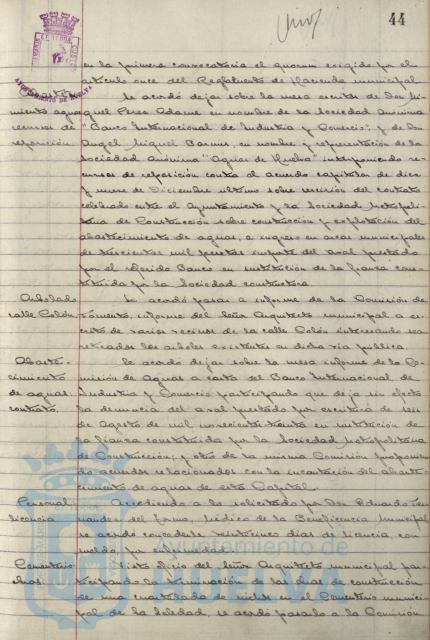 44
AYUNTAMIENTO DE HUELVA
en la primera convocatoria el quorum exigido por el
artículo once del Reglamento de Hacienda municipal.
Se acordó dejar sobre la mesa escritos de Don Mi-
guel Perez Adame en nombre de la Sociedad Anónima
recursos de "Banco Internacional de Industria y Comercio", y de Don
reposición. Angel Miguel en nombre y representación de la
Sociedad Anónima "Aguas de Huelva" interponiendo re-
cursos de reposición contra el acuerdo capitular de diez
y nueve de Diciembre último sobre rescisión del contrato
celebrado entre el Ayuntamiento y la Sociedad Metropoli-
tana de Construcción sobre construcción y explotación del
abastecimiento de aguas, e ingreso en arcas municipales
de trescientas mil pesetas importe del aval prestado
por el referido Banco en sustitución de la fianza cons-
tituida por la Sociedad constructora.
Arbolado Se acordó pasar a informe de la Comisión de
calle Colón. Fomento, informe del Señor Arquitecto municipal a es-
crito de varios vecinos de la calle Colón interesando sean
retirados los arboles existentes en dicha vía pública.
Abaste- Se acordó dejar sobre la mesa informe de la Co-
cimiento misión de Aguas a carta del Banco Internacional de
de aguas: Industria y Comercio participando que deja sin efecto
contrato. la denuncia del aval prestado por escritura de seis
de Agosto de mil novecientos treinta en sustitución de
la fianza constituida por la Sociedad Metropolitana
de Construcción; y otro de la misma Comisión proponien-
do acuerdos relacionados con la incautación del abaste-
cimiento de aguas de esta Capital.
Personal: Accediendo a lo solicitado por Don Eduardo Fer-
licencia nandez del Torno, Médico de la Beneficencia Municipal
se acordó concederle veinticinco dias de licencia, con
sueldo, por enfermedad.
Cementerio: Visto oficio del Señor Arquitecto municipal par-
obras. ticipando la terminación de las obras de construcción
de una cuartelada de nichos en el Cementerio munici-
pal de la Soledad, se acordó pasarlo a la Comisión
Ayuntamiento de
HUELVA